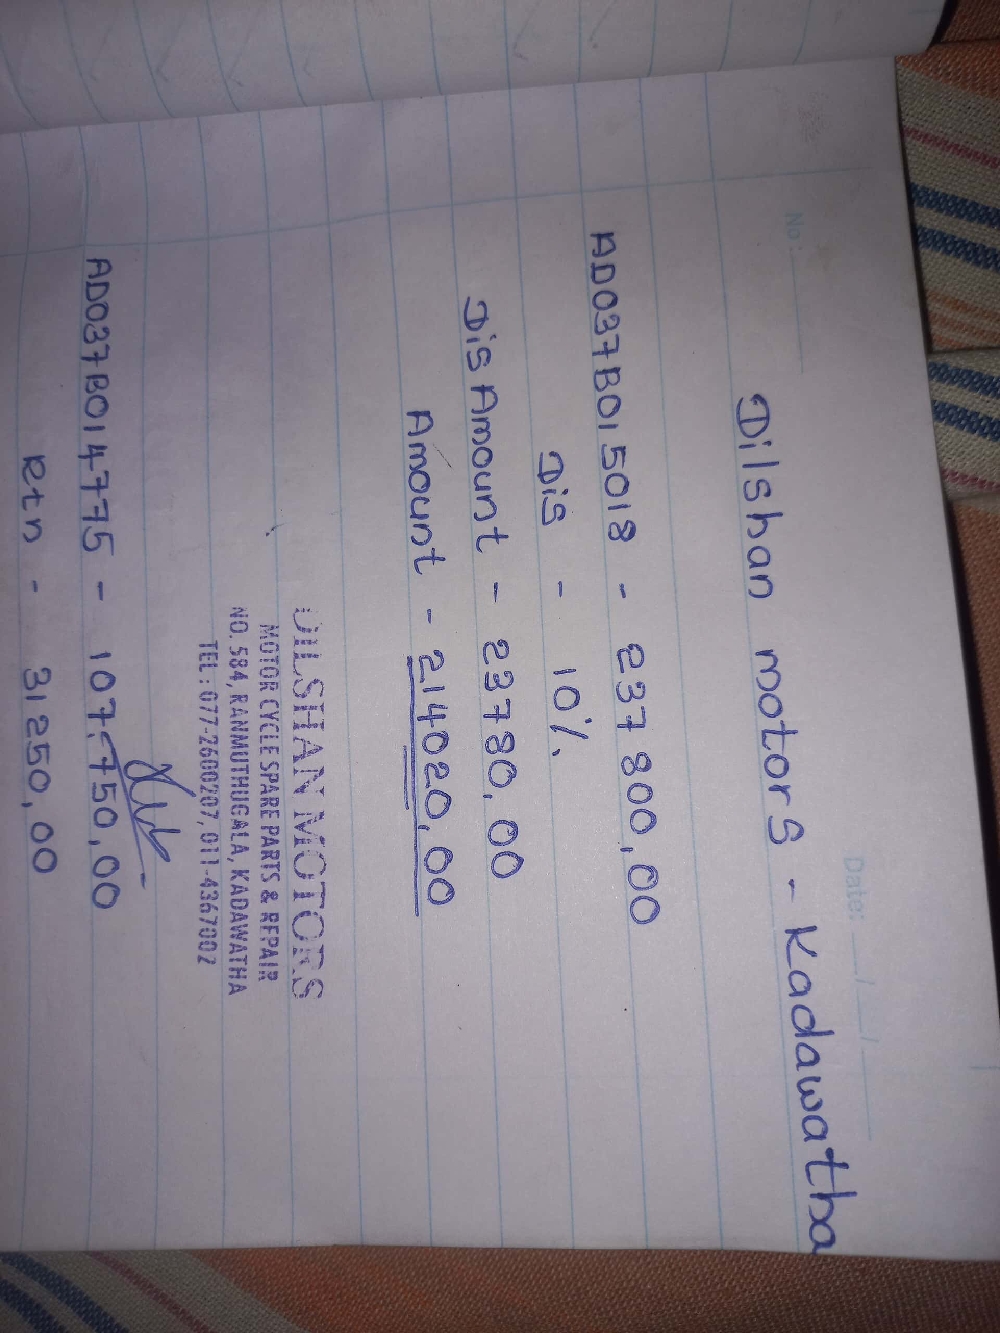 No:
Date: / /
Dilshan motors - Kadawatha
AD037B015018 - 237800,00
Dis - 10%
Dis Amount - 23780,00
Amount - 214020,00
DILSHAN MOTORS
MOTOR CYCLE SPARE PARTS & REPAIR
NO. 584, RANMUTHUGALA, KADAWATHA
TEL : 077-2600207, 011-4367002
AD037B014775 - 107,750,00
Rtn - 31250,00